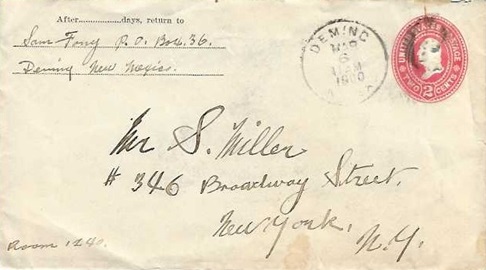 After..............days, return to
Sam Fong P.O. Box 36.
Deming New Mexico.
DEMING
MAR
6
1900
UNITED STATES POSTAGE
TWO 2 CENTS
Mr S. Miller
# 346 Broadway Street.
New York,
N.Y.
Room 1240.